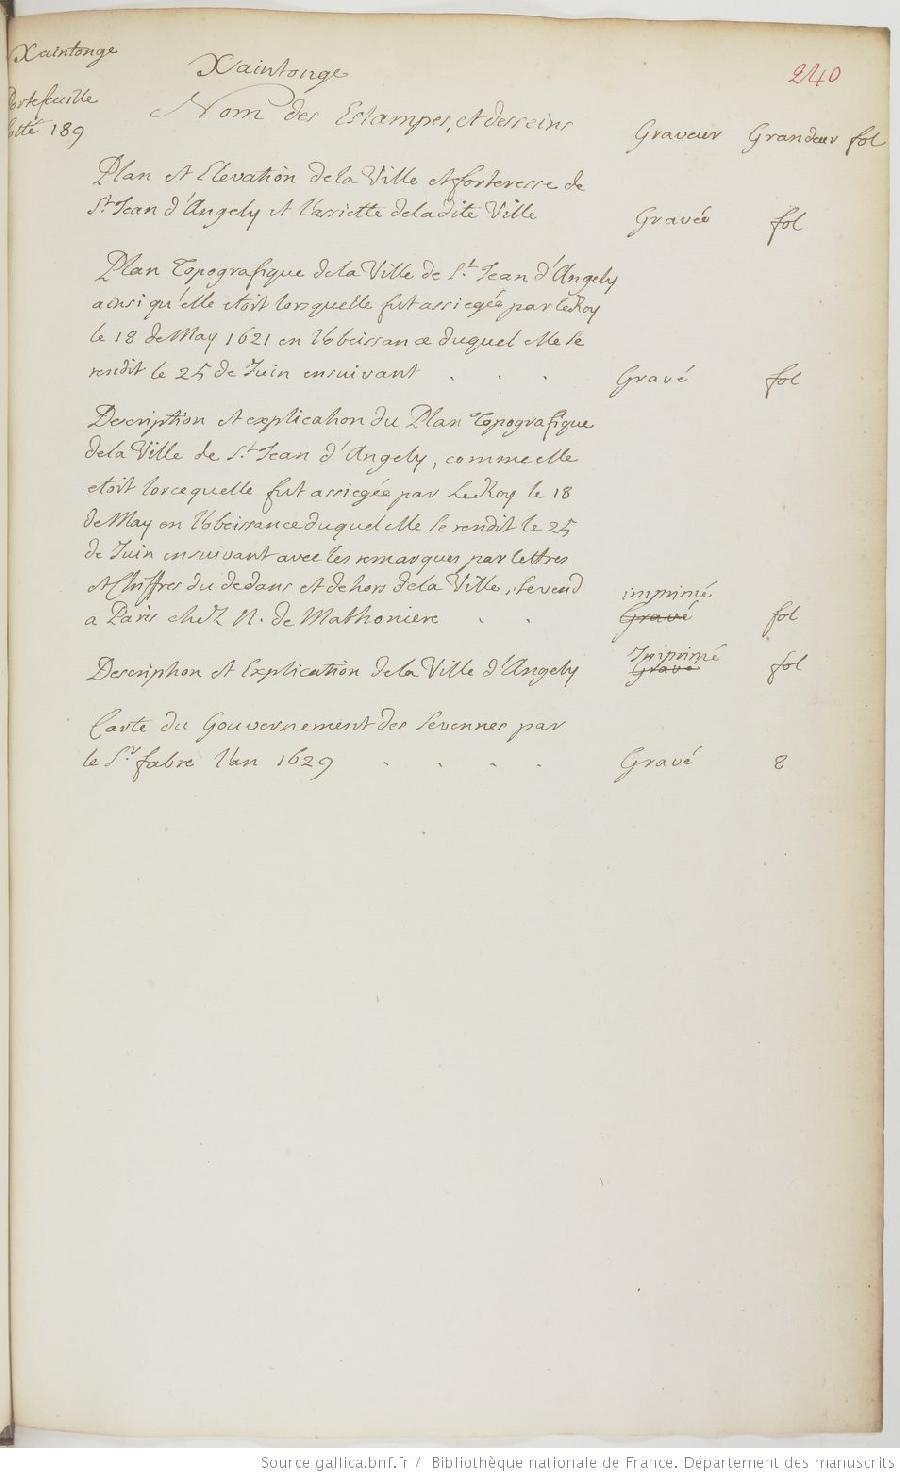 Xaintonge
Xaintonge
240
Portefeuille
cotté 189
Nom des Estampes, et desseins
Graveur Grandeur fol
Plan et Elevation de la Ville et forteresse de
St. Jean d'Angely et l'assiette de la dite Ville
Gravée fol
Plan Topografique de la Ville de St. Jean d'Angely
ainsi qu'elle etoit lorsquelle fut assiegée par le Roy
le 18 de May 1621 en l'obeissance duquel elle se
rendit le 25 de Juin ensuivant . . . Gravé fol
Description et explication du Plan Topografique
de la Ville de St. Jean d'Angely, comme elle
etoit lorcequelle fut assiegée par Le Roy le 18
de May en l'obeissance duquel elle se rendit le 25
de Juin ensuivant avec les remarques par lettres
et Chiffres du dedans et dehors de la Ville, se vend
imprimé
a Paris chez N. de Mathoniere . . Gravé fol
Imprimé
Description et Explication de la Ville d'Angely Gravé fol
Carte du Gouvernement des Sevennes par
le Sr. fabre l'an 1629 . . . . Gravé 8
Source gallica.bnf.fr / Bibliothèque nationale de France. Département des manuscrits